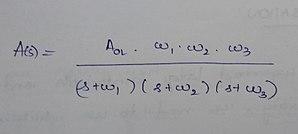 A(s) = A_OL . ω₁ . ω₂ . ω₃
(s+ω₁) (s+ω₂) (s+ω₃)